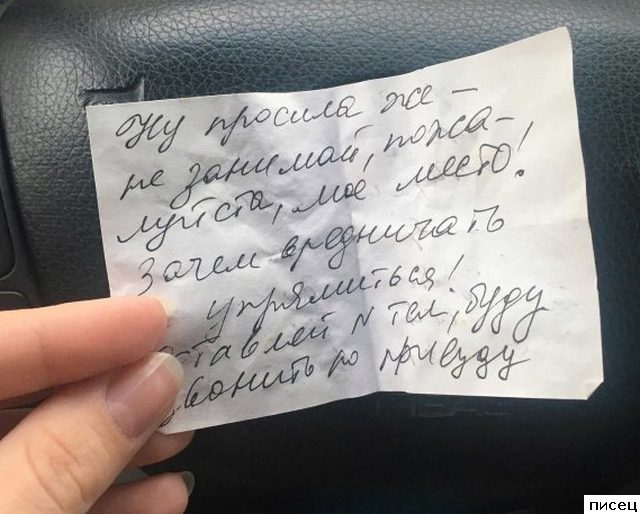 Ну просила же –
не занимай, пожа-
луйста, мое место!
Зачем вредничать
упрямиться!
ставляй N тел, буду
звонить по приезду
писец